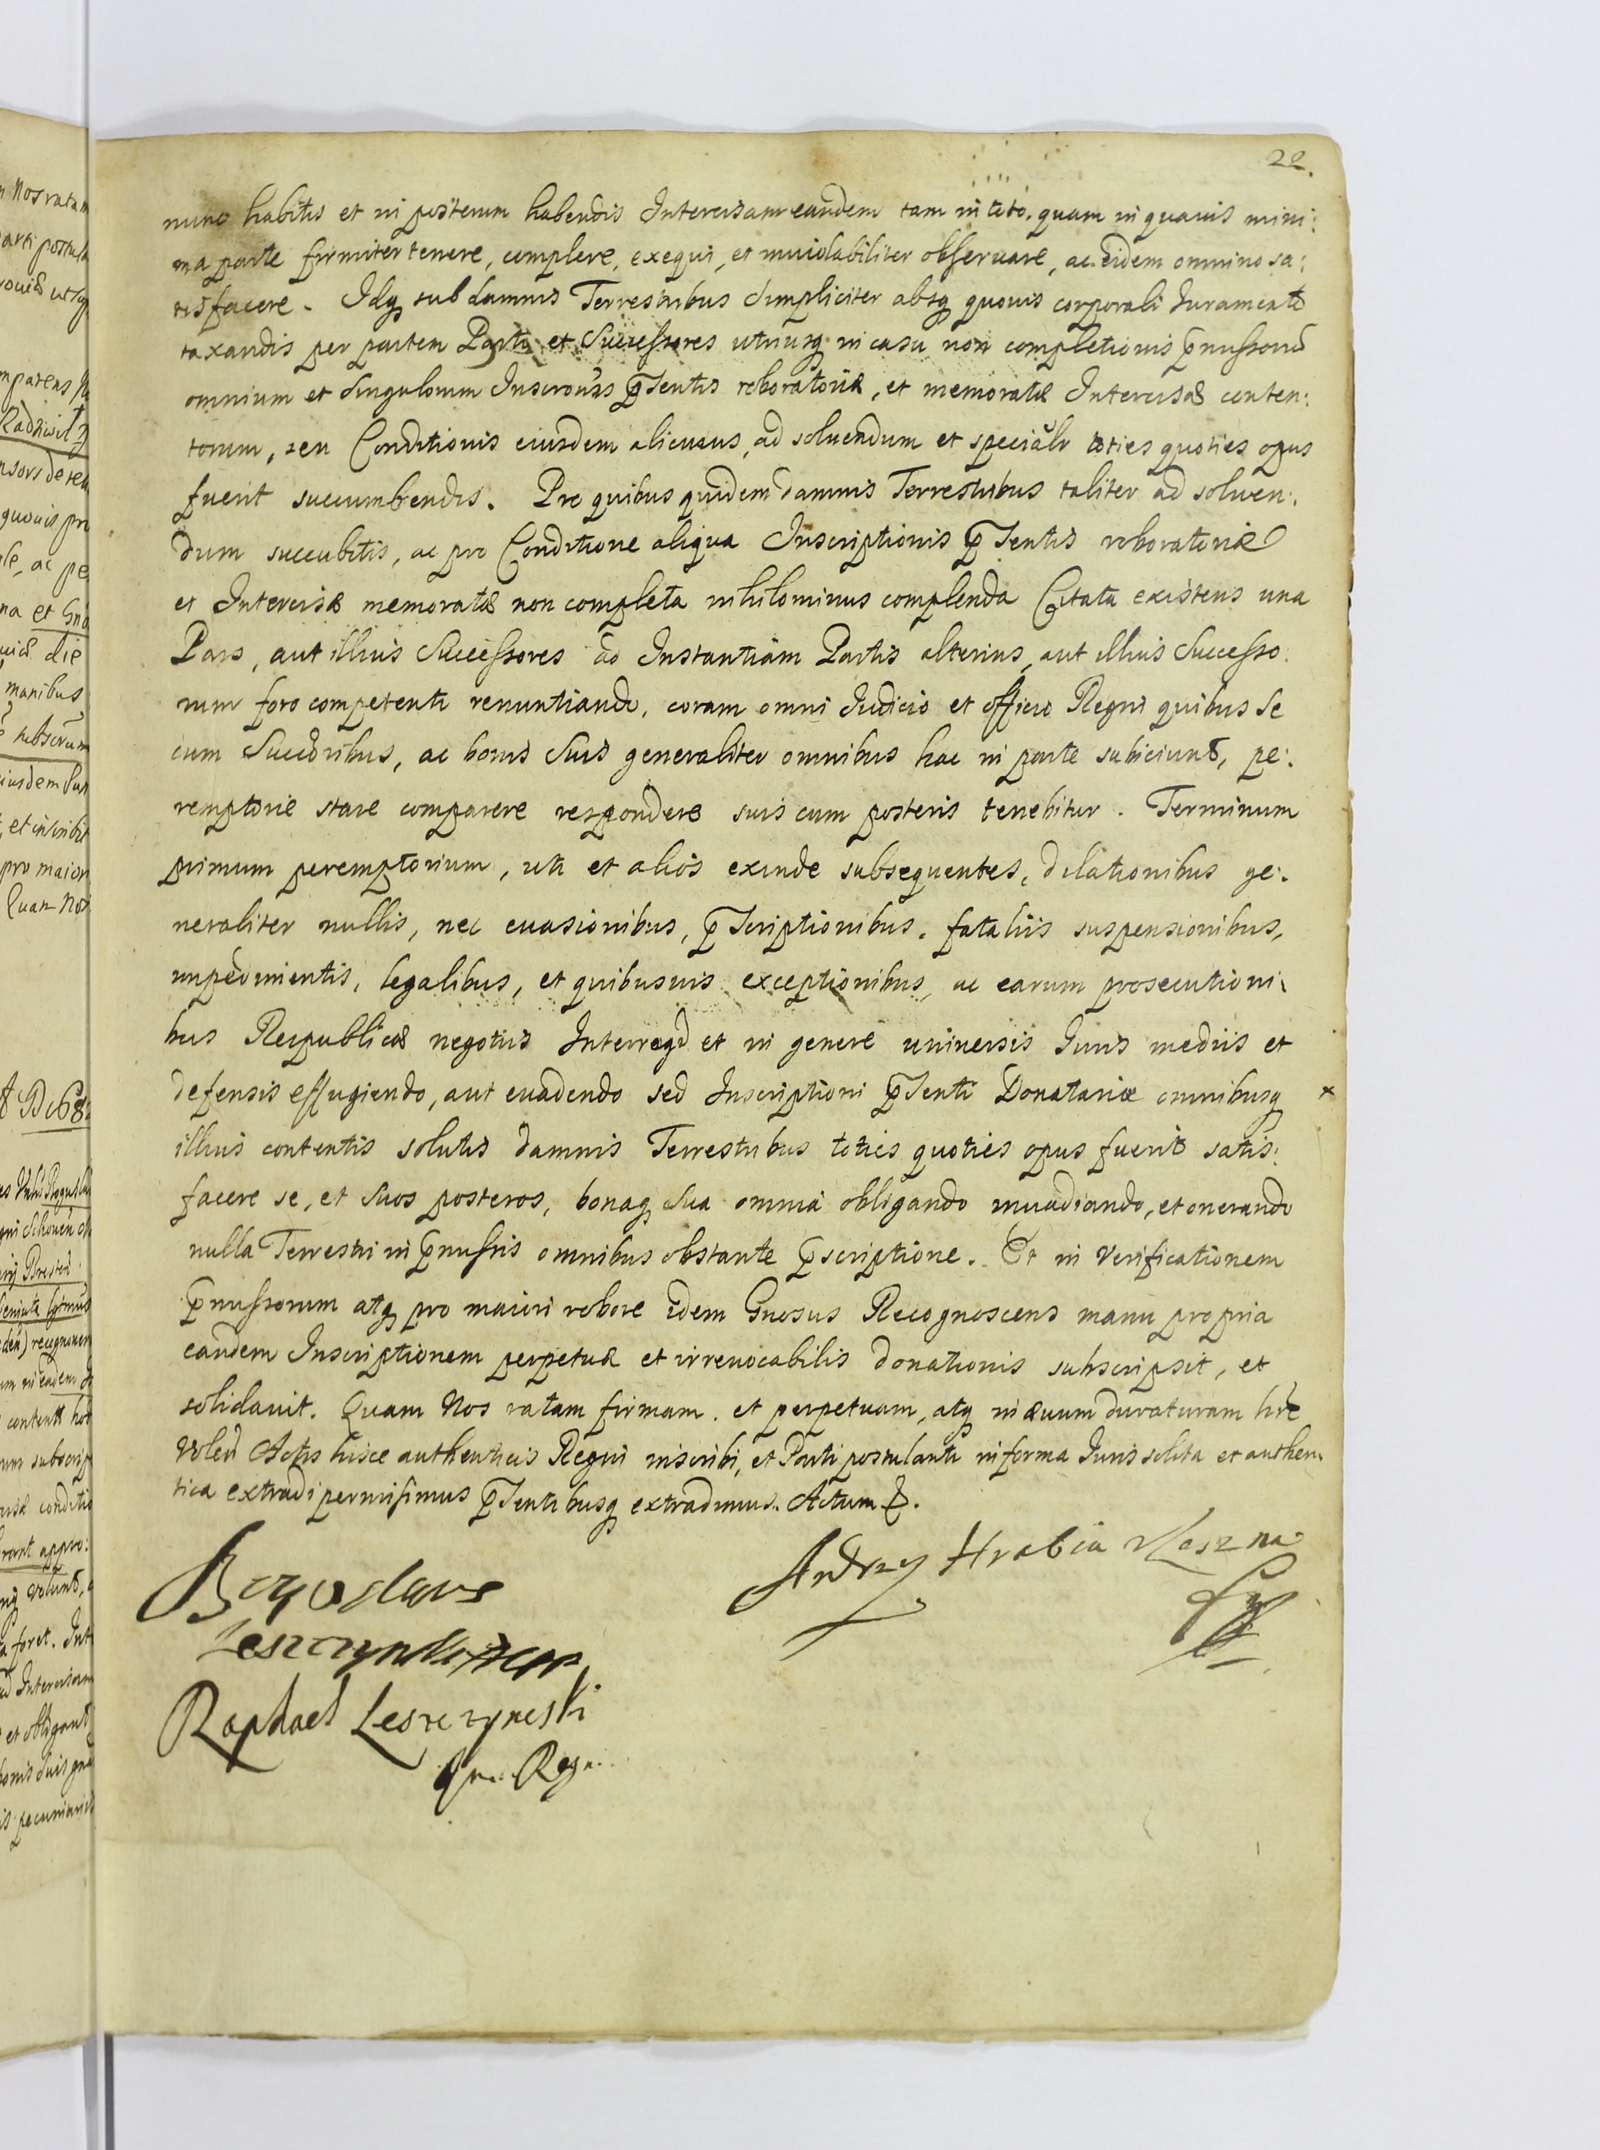 22.
nunc habitis et in posterum habendis Intercisam eandem tam in toto quam in quavis mini:
ma parte firmiter tenere, complere, exequi, et inviolabiliter observare, ac eidem omnino sa:
tisfacere. Idq sub damnis Terrestribus simpliciter absq quovis corporali Iuramento
taxandis per partem Parti et Successores utriusq in casu non completionis pmissorũ
omnium et singulorum Inscronis pſentis roboratoriæ, et memoratæ Intercisæ conten:
torum, seu Conditionis eiusdem alicuius, ad solvendum et specialr toties quoties opus
fuerit succumbendis. Pro quibus quidem damnis Terrestribus taliter ad solven:
dum succubitis, ac pro Conditione aliqua Inscriptionis pſentis roboratoriæ
et Intercisæ memoratæ non completa nihilominus complenda Citata existens una
Pars, aut illius Successores ad Instantiam Partis alterius, aut illius Successo
rum foro competenti renuntiando, coram omni Iudicio et officio Regni quibus se
cum Succoribus, ac bonis suis generaliter omnibus hac in parte subiciunt, pe:
remptorie stare comparere respondere suis cum posteris tenebitur. Terminum
primum peremptorium, uti et alios exinde subsequentes, dilationibus ge:
neraliter nullis, nec evasionibus, pſcriptionibus, fataliis suspensionibus,
impedimentis, legalibus, et quibusvis exceptionibus, ac earum prosecutioni
bus Reipublicæ negotiis Interregi et in genere universis Iuris mediis et
defensis effugiendo, aut evadendo sed Inscriptioni pſenti Donatariæ omnibusq x
illius contentis solutis damnis Terrestribus toties quoties opus fuerit satis:
facere se, et suos posteros, bonaq sua omnia obligando invadiando, et onerando
nulla Terrestri in pmissis omnibus obstante pscriptione. Et in verificationem
pmissorum atq pro maiori robore idem Gnosus Recognoscens manu propria
eandem Inscriptionem perpetuæ et irrevocabilis donationis subscripsit, et
solidavit. Quam Nos ratam firmam et perpetuam, atq in ævum duraturam hre
volen Actis hisce authenticis Regni inscribi, et Parti postulanti in forma Iuris solita et authen
tica extradi permisimus pſentibusq extradimus. Actum &.
Boguslaus
Andrzy Hrabia
Raphael Leszczynski